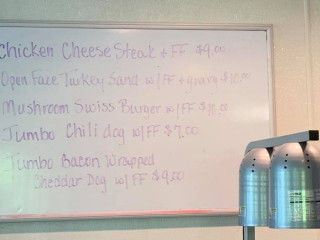 Chicken Cheese Steak + FF $9.00
Open Face Turkey Sand w/FF + gravy $10.00
Mushroom Swiss Burger w/FF
Jumbo Chili dog w/FF $7.00
Jumbo Bacon Wrapped
Cheddar Dog w/FF $9.00